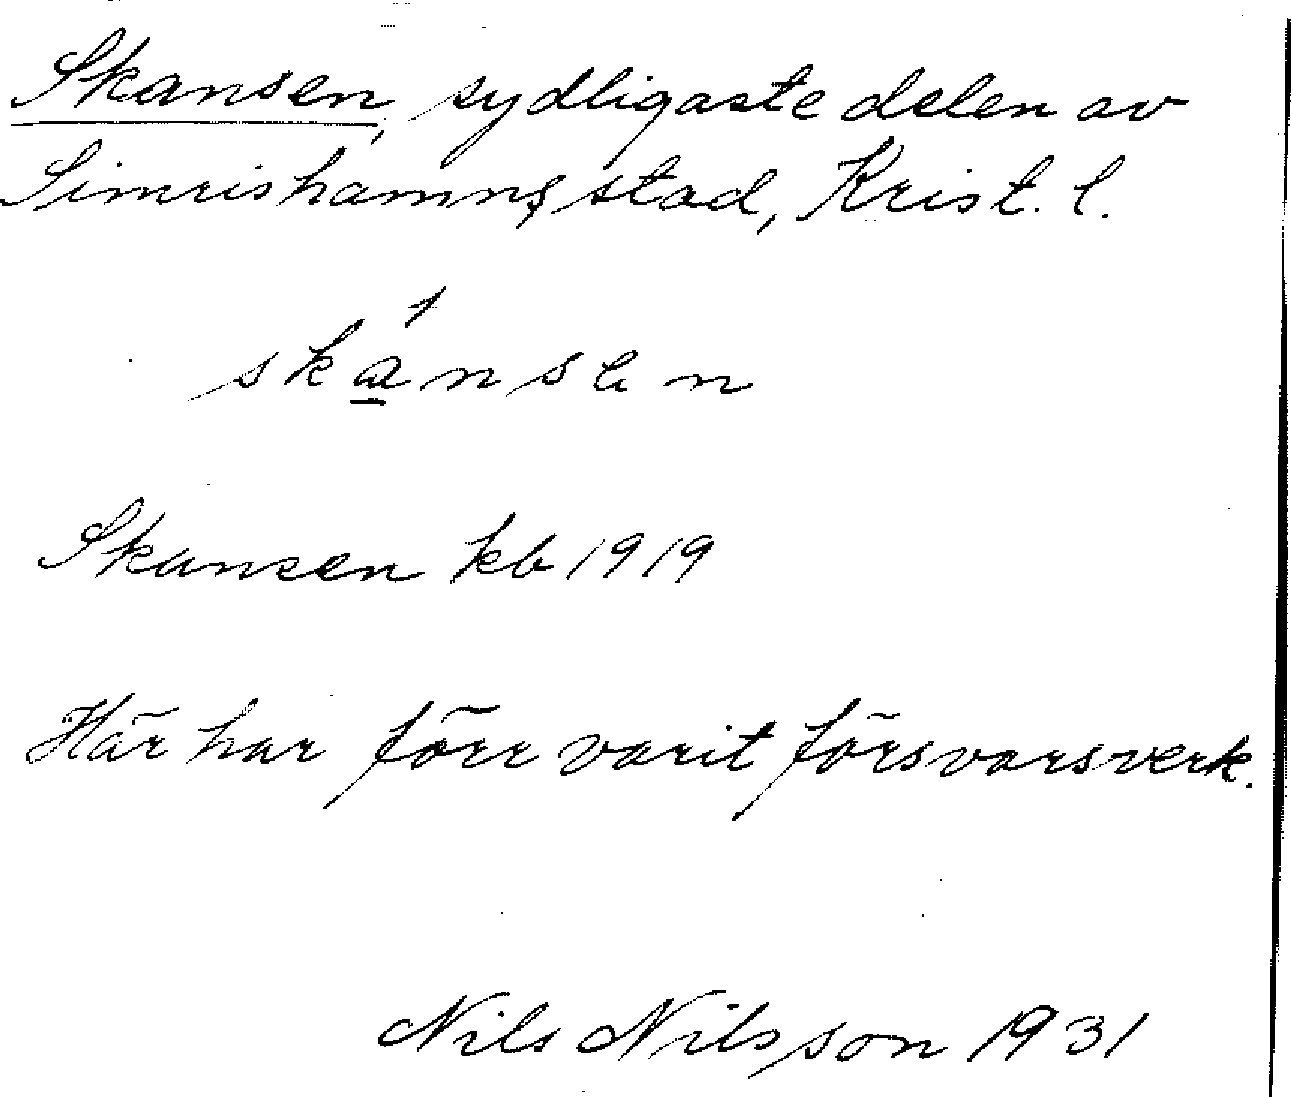 Skansen, sydligaste delen av
Simrishamns stad, Krist. l.
skánsen
Skansen kb 1919
Här har förr varit försvarsverk.
Nils Nilsson 1931